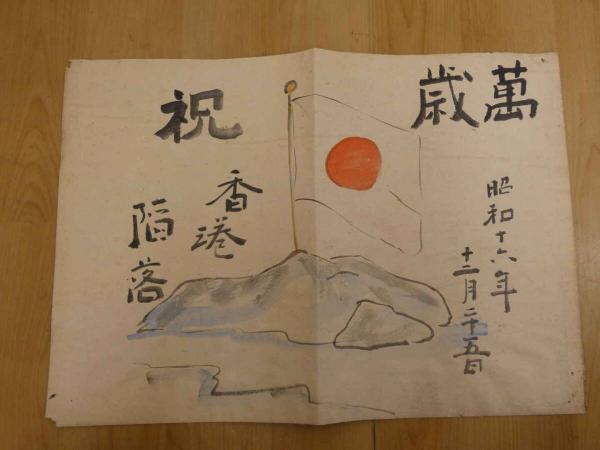 萬歳
昭和十六年
十二月二十五日
祝
香港
陥落